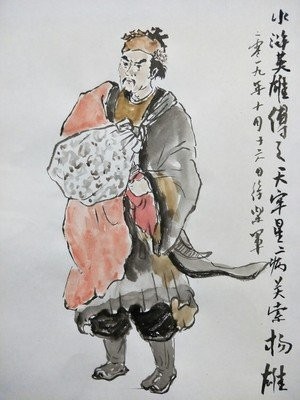 水浒英雄傳之天牢星病关索杨雄
二零一九年十月十六日徐榮軍